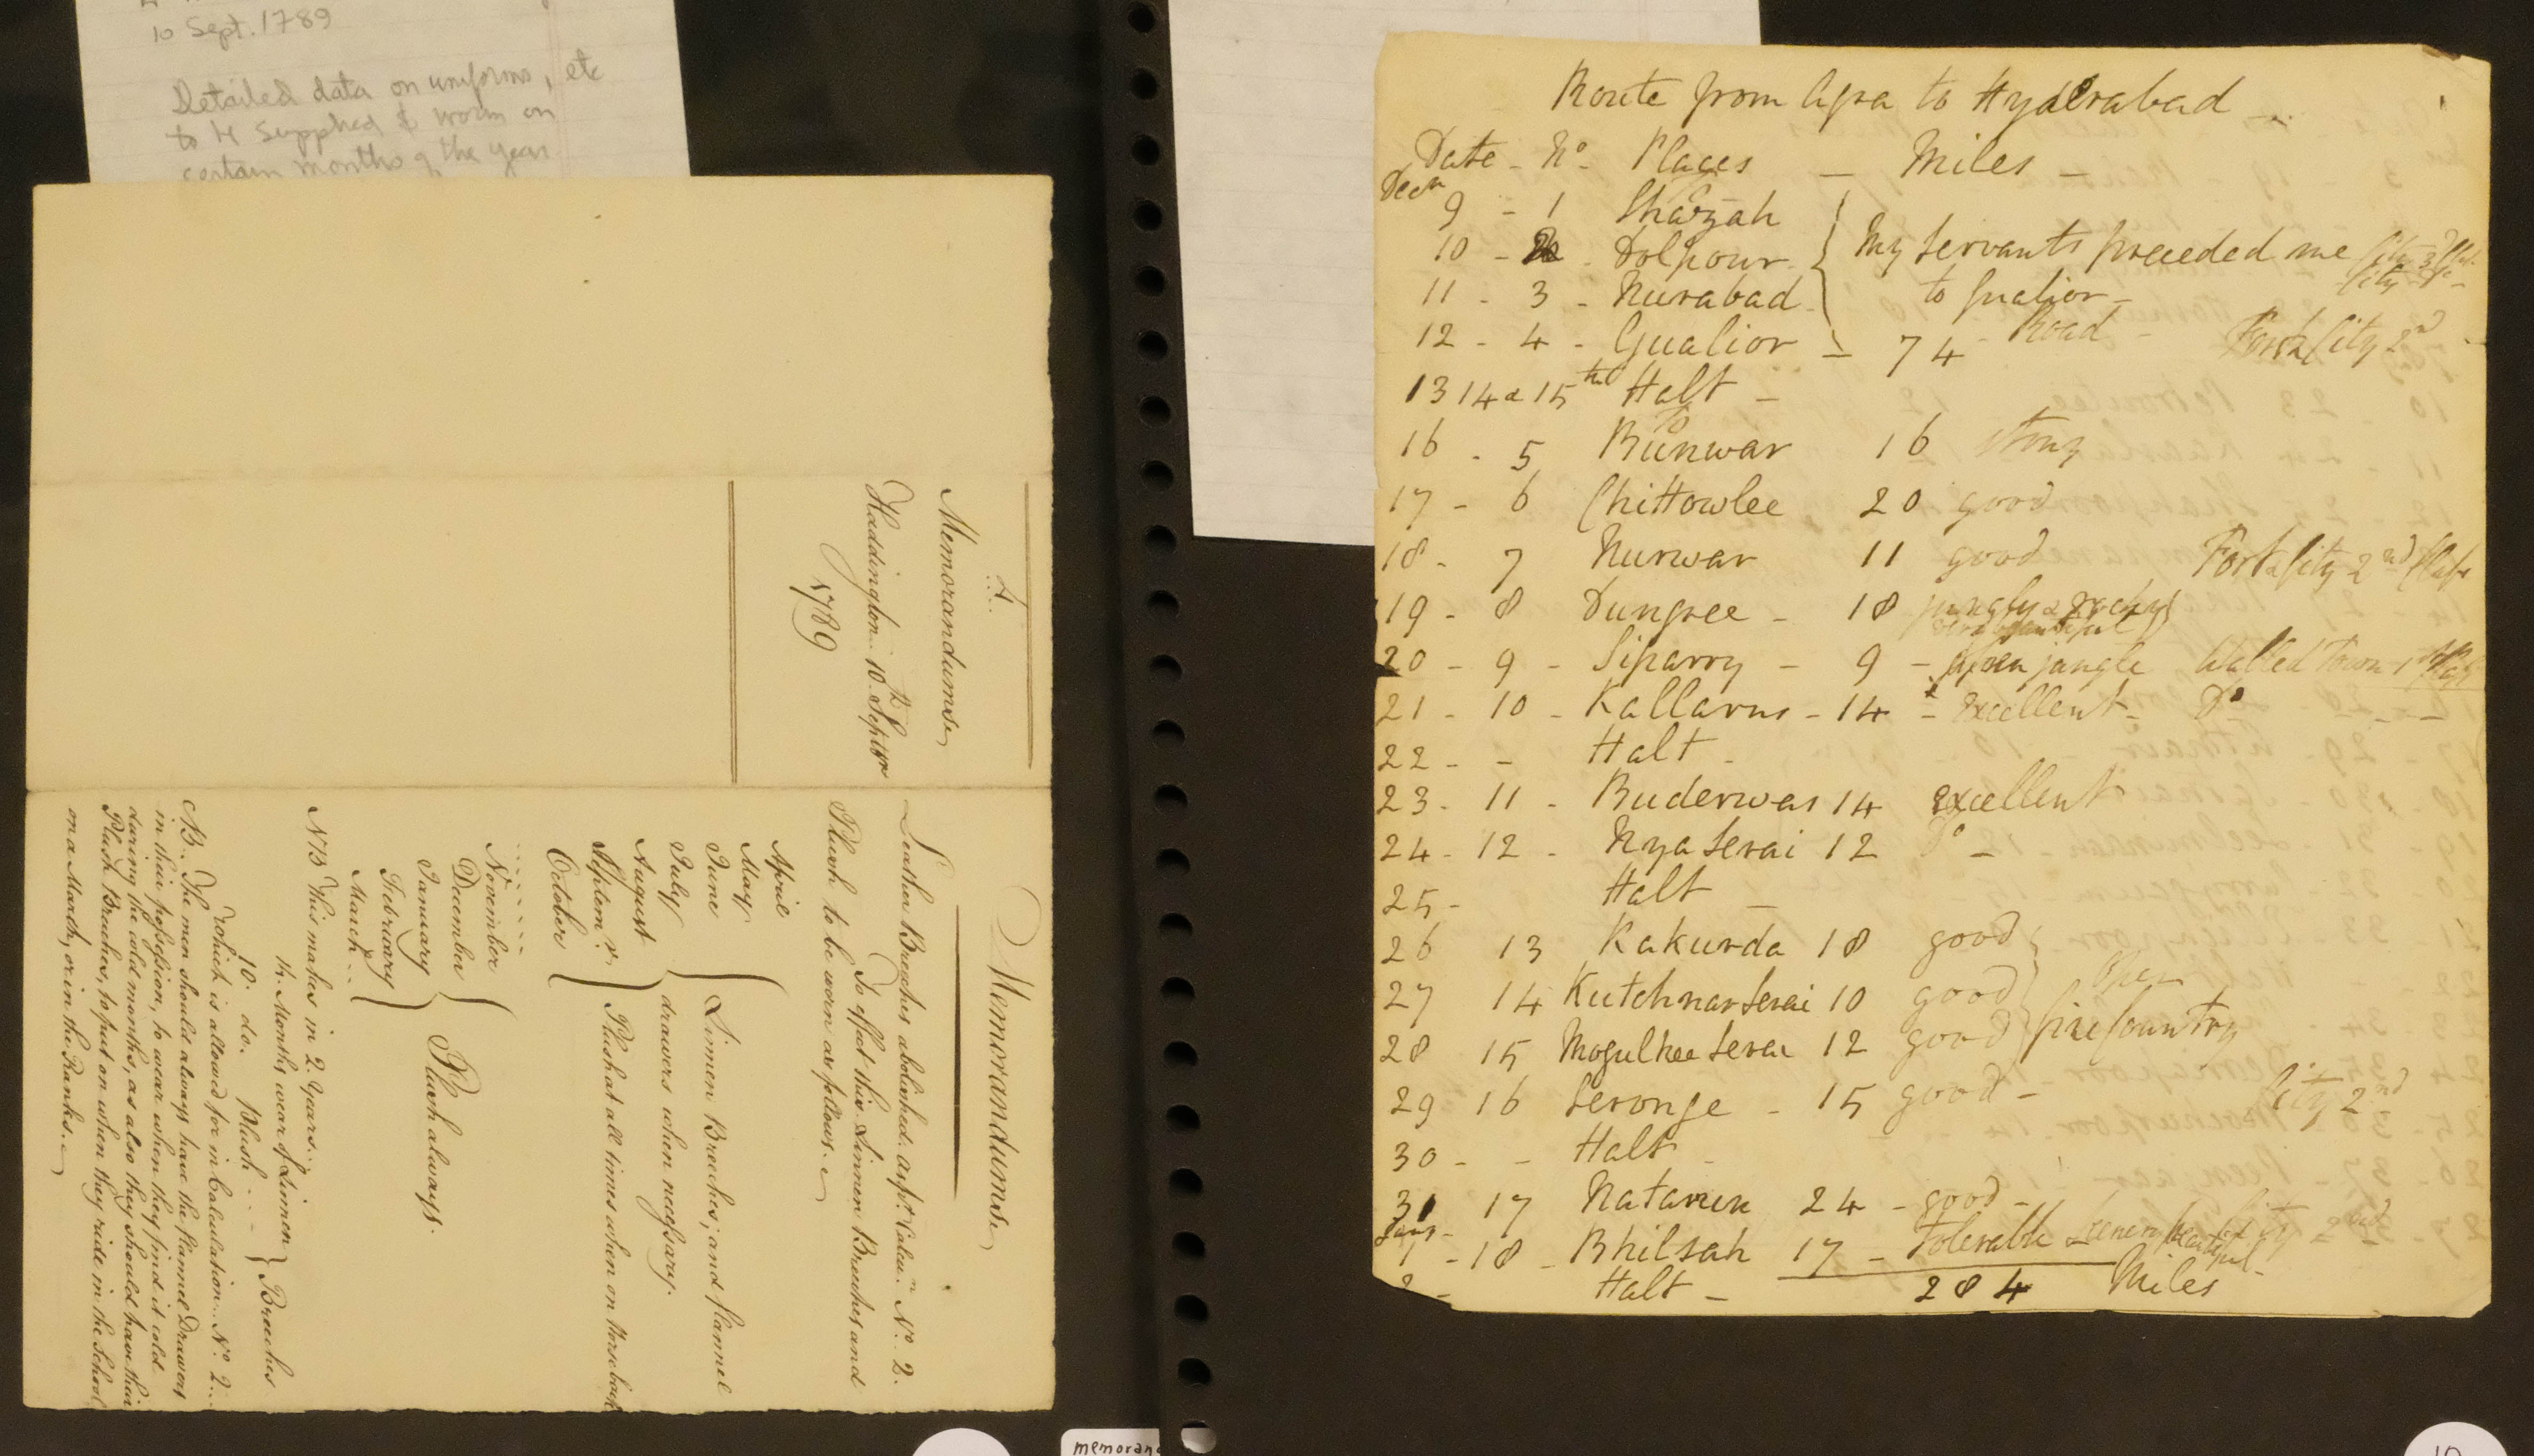 10 Sept. 1789
Detailed data on uniforms, etc
to be supplied & worn on
certain months of the year
4.
Memorandums
Haddington 10th. Septbr
1789
Memorandums
Leather Breeches abolished. as pr. Calcun. No. 2.
To effect this Linnen Breeches and
Plush to be worn as follows.
April
May
June
July
Linnen Breeches, and flannel
drawers when necessary.
August
Septemr.
October
Plush at all times when on Horseback
November
December
January
February
March
Plush always.
NB This makes in 2. Years.
14. Months wear of Linnen
10. do. Plush
Breeches
which is allowed for in Calculation No. 2.
NB. The men should always have the flannel Drawers
in their possession, to wear when they find it cold
during the cold months, as also they should have their
Plush Breeches, to put on when they ride in the School
on a March, or in the Ranks.
Route from Agra to Hyderabad
Date - No. Places - Miles -
Decr
9 - 1
10 - Dolpour
11 - 3 - Nurabad
My servants preceded me
to Gualior
12 - 4 - Gualior - 74 Road - Fort & City 2d
13 14 & 15th Halt -
16 - 5 Bunwar 16 stony
17 - 6 Chittowlee 20 good
18 - 7 Nurwar 11 good Fort & City 2nd Class
19 - 8 Dungree - 18 jungly & rocky
very beautiful
20 - 9 - Siparry - 9 - open jungle Walled Town 1st
21 - 10 - Kallarus - 14 - Excellent - Do - -
22 - - Halt -
23 - 11 - Buderwas 14 excellent
24 - 12 - Nya Serai 12 Do -
25 - Halt -
26 13 Kakurda 18 good
27 14 Kutchnar Serai 10 good
28 15 Mogulkee Serai 12 good
Open
fine Country
29 16 Seronge - 15 good - City 2nd
30 - - Halt -
31 17 Nataren 24 - good -
Jany -
1 - 18 - Bhilsah 17 - Tolerable Scenery beautiful City 2nd
2 - Halt - 284 Miles
memoran
10